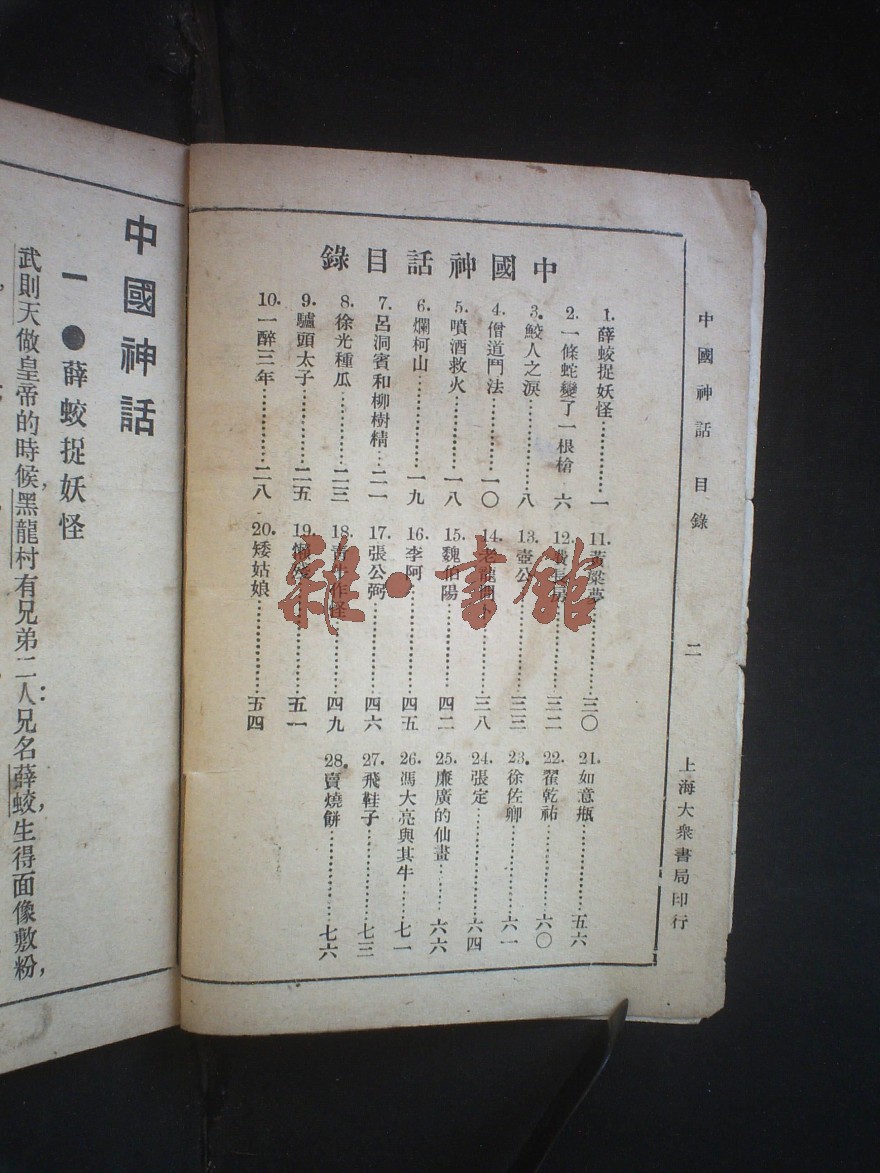 中國神話 目錄
二
上海大衆書局印行
中國神話目錄
1. 薛蛟捉妖怪……………一
2. 一條蛇變了一根槍 六
3. 鮫人之淚……………八
4. 僧道鬥法……………一〇
5. 噴酒救火……………一八
6. 爛柯山……………一九
7. 呂洞賓和柳樹精…二一
8. 徐光種瓜……………二三
9. 驢頭太子……………二五
10. 一醉三年……………二八
11. 黃粱夢……………三〇
12. 費長房……………三二
13. 壺公……………三三
14. 老龍……………三八
15. 魏伯陽……………四二
16. 李阿……………四五
17. 張公弼……………四六
18. 青牛作怪……………四九
19. 懶殘……………五一
20. 矮姑娘……………五四
21. 如意瓶……………五六
22. 翟乾祐……………六〇
23. 徐佐卿……………六一
24. 張定……………六四
25. 廉廣的仙畫……六六
26. 馮大亮與其牛…七一
27. 飛鞋子……………七三
28. 賣燒餅……………七六
雜·書館
中國神話
一●薛蛟捉妖怪
武則天做皇帝的時候，黑龍村有兄弟二人：兄名薛蛟，生得面像敷粉，